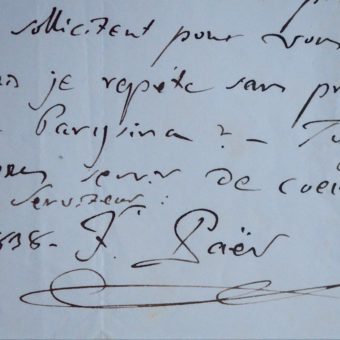 sollicitent pour vous
je repète sans pr
Parisina ? — Tu
servir de coeu
Serviteur :
838 - F. Paër